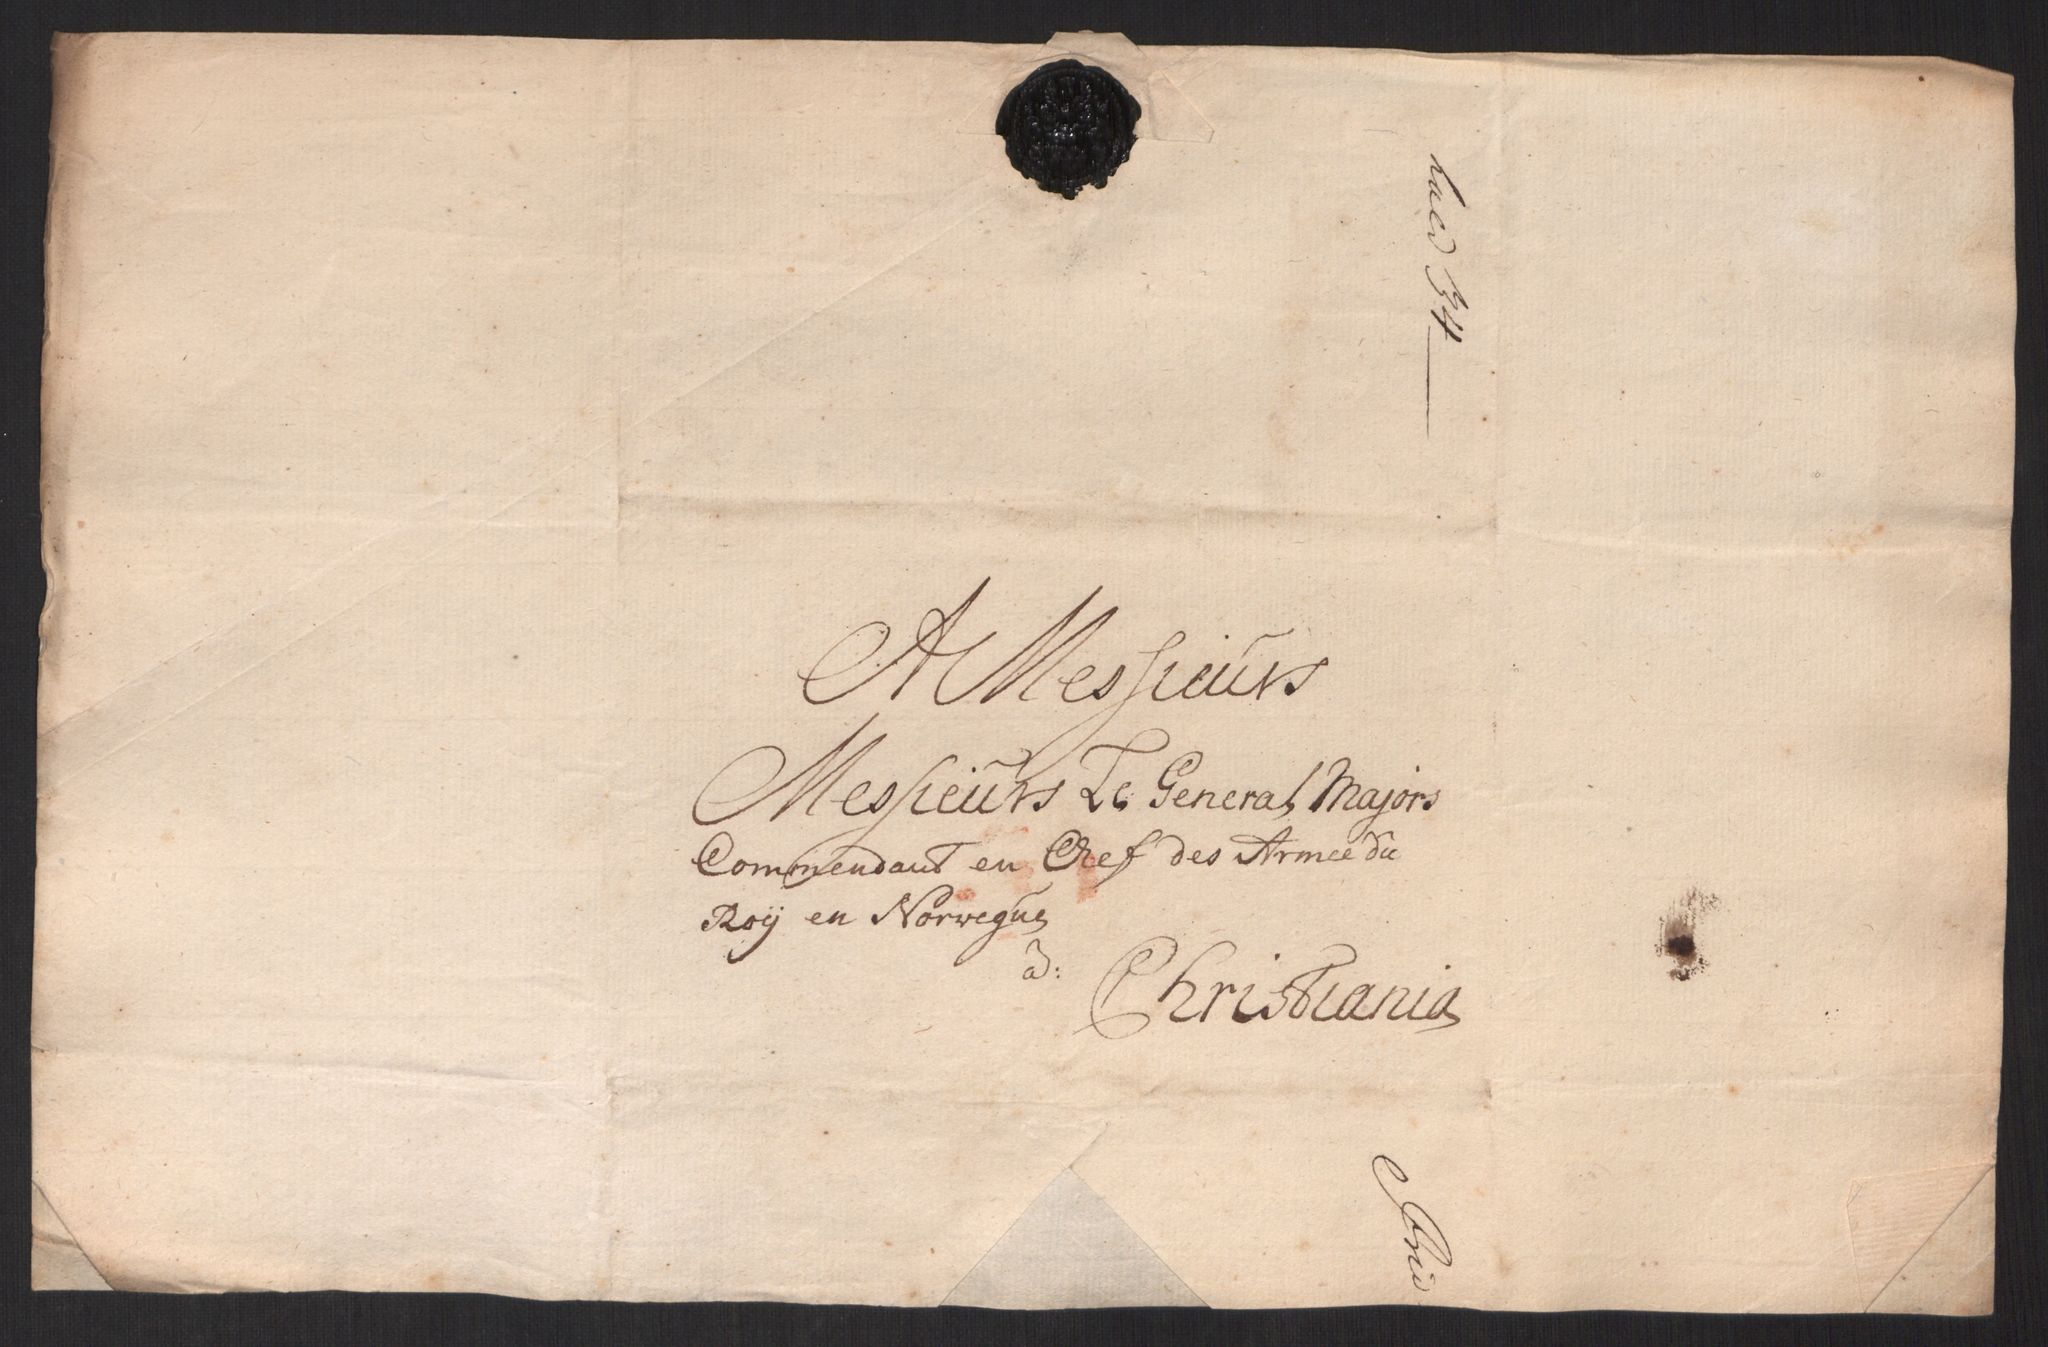 A Messieurs
Messieurs Le General Majors
Commendant en Chef des Armee du
Roÿ en Norwegue
à:
Christiania
34